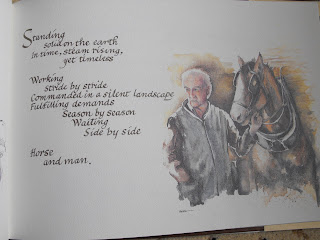 Standing
solid on the earth
in time, steam rising,
yet timeless
Working
stride by stride
Commanded in a silent landscape
Fulfilling demands
Season by season
Waiting
Side by side
Horse
and man.